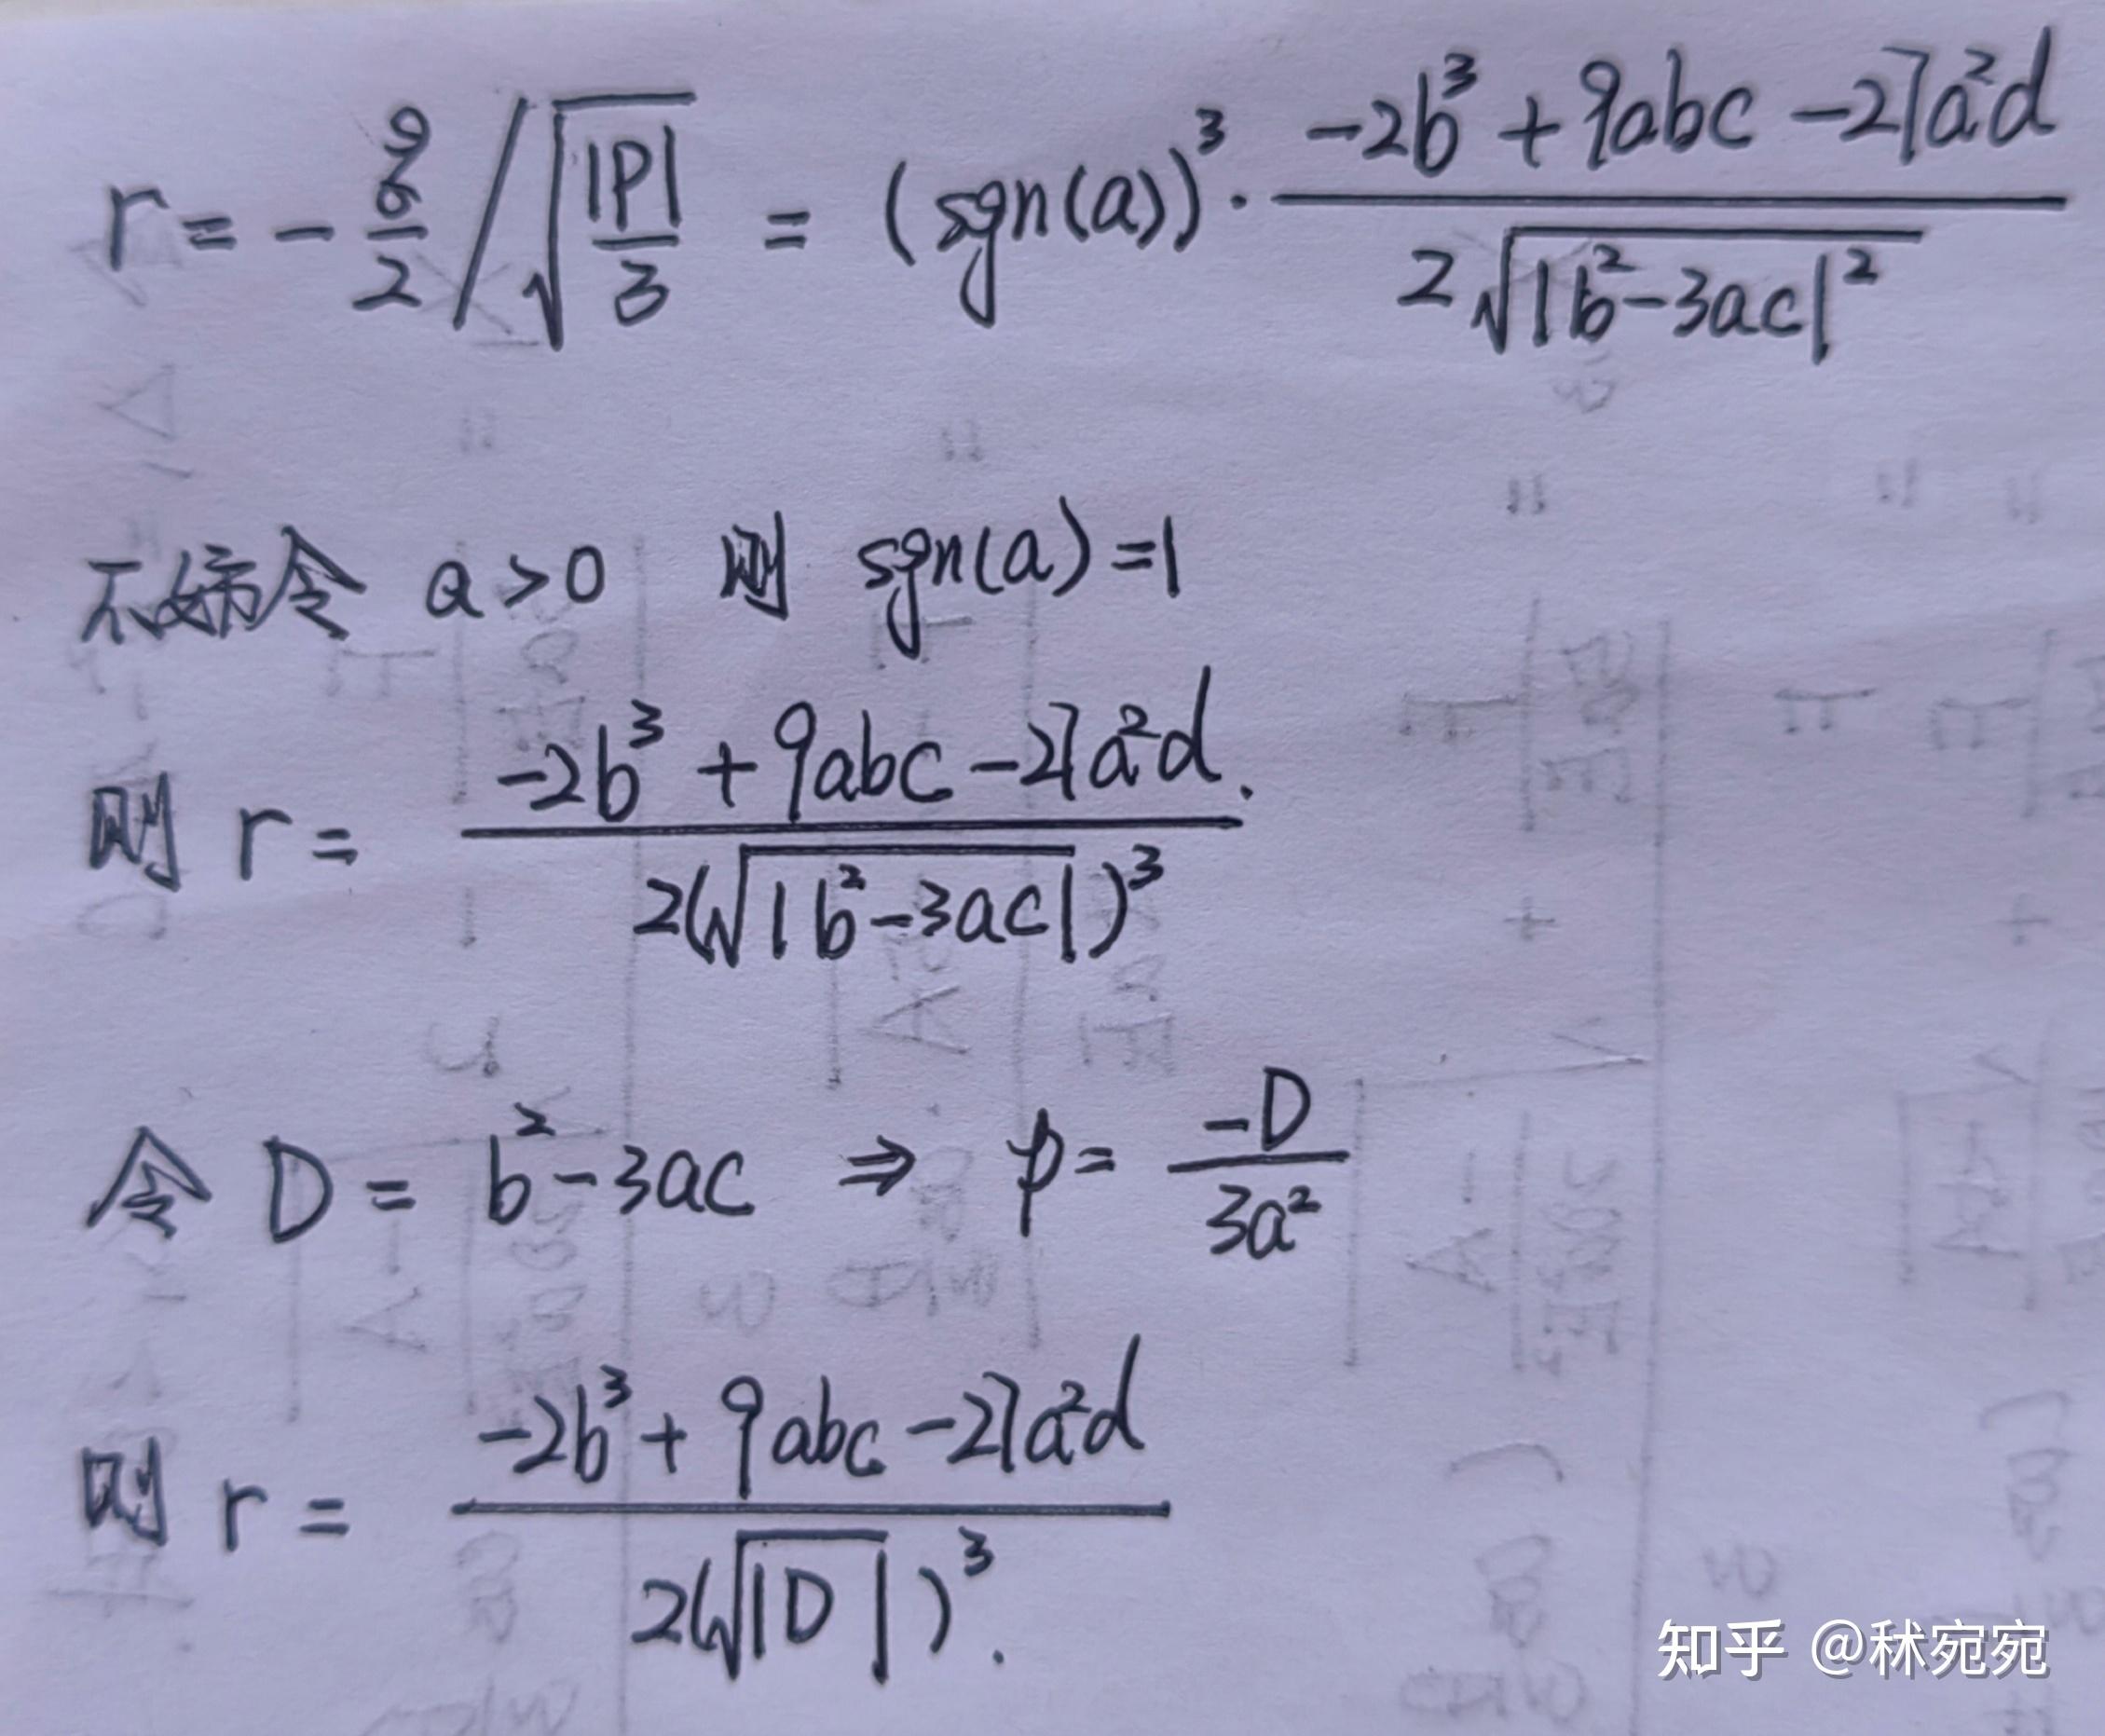 r = -\frac{\frac{q}{6}}{2} / \sqrt{\frac{|P|}{3}} = (sgn(a))^3 · \frac{-2b^3 + 9abc - 27a^2d}{2\sqrt{|b^2 - 3ac|^2}}
不妨令 a > 0 则 sgn(a) = 1
则 r = \frac{-2b^3 + 9abc - 27a^2d.}{2(\sqrt{|b^2 - 3ac|})^3}
令 D = b^2 - 3ac ⇒ p = \frac{-D}{3a^2}
则 r = \frac{-2b^3 + 9abc - 27a^2d}{2(\sqrt{|D|})^3.}
知乎 @秫宛宛